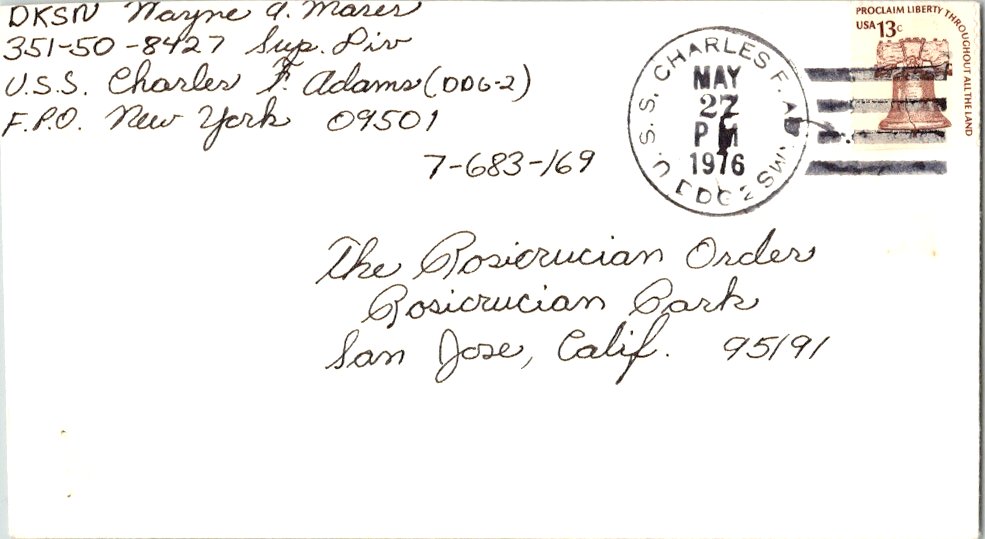 DKSN Wayne A. Mares
351-50-8427 Sup. Div
U.S.S. Charles F. Adams (DDG-2)
F.P.O. New York 09501
7-683-169
U.S.S. CHARLES F. ADAMS
DDG 2
MAY
27
PM
1976
PROCLAIM LIBERTY THROUGHOUT ALL THE LAND
USA 13c
The Rosicrucian Order
Rosicrucian Park
San Jose, Calif. 95191